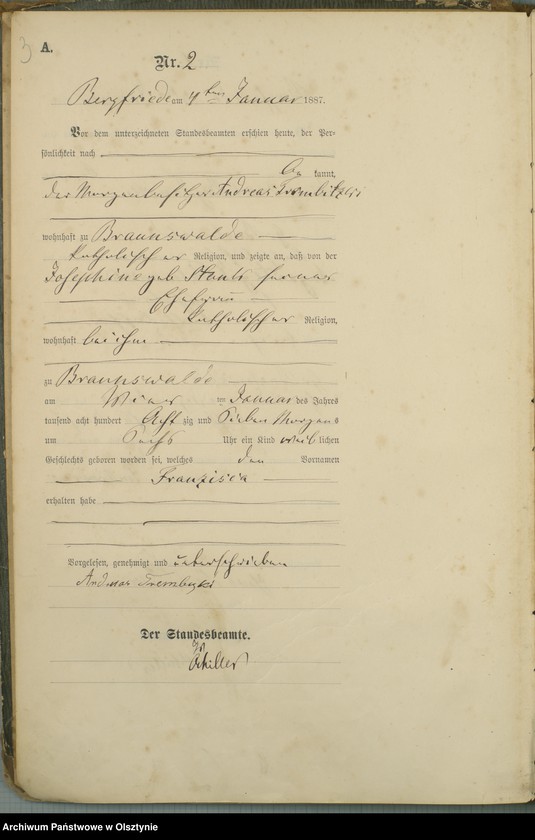 3
A.
Nr. 2
Bergfriede am 4ten Januar 1887.
Vor dem unterzeichneten Standesbeamten erschien heute, der Per-
sönlichkeit nach
kannt,
der Morgenbesitzer Andreas
wohnhaft zu Braunswalde
katholischer Religion, und zeigte an, daß von der
Josephine geb
Ehefrau
katholischer Religion,
wohnhaft bei ihm
zu Braunswalde
am ten Januar des Jahres
tausend acht hundert Acht zig und Sieben Morgens
um Sechs Uhr ein Kind weib lichen
Geschlechts geboren worden sei, welches den Vornamen
Franzisca
erhalten habe
Vorgelesen, genehmigt und unterschrieben
Der Standesbeamte.
Schiller
Archiwum Państwowe w Olsztynie